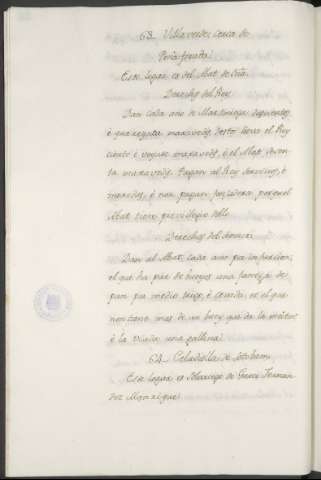 63. Villaverde, cerca de
Peña forada.
Este logar es del Abat de Oña.
Derechos del Rey
Dan cada año de Martiniega doscientos,
è quarenta maravedis, desto lieva el Rey
ciento è veynte maravedis, è el Abat
maravedis. Pagan al Rey servicios, è
monedas, è non pagan fonsadera porque el
Abat tiene privilegio dello
Derechos del Señor
Dan al Abat cada año por infurcion,
el que ha par de bueyes una fanega de
pan por medio trigo, è cevada, et el que
non tiene mas de un buey que dé la meitat
è la viuda una gallina.
64. Celadilla de Sotobrin.
Este logar es de Garci Ferran
dez Manrique.